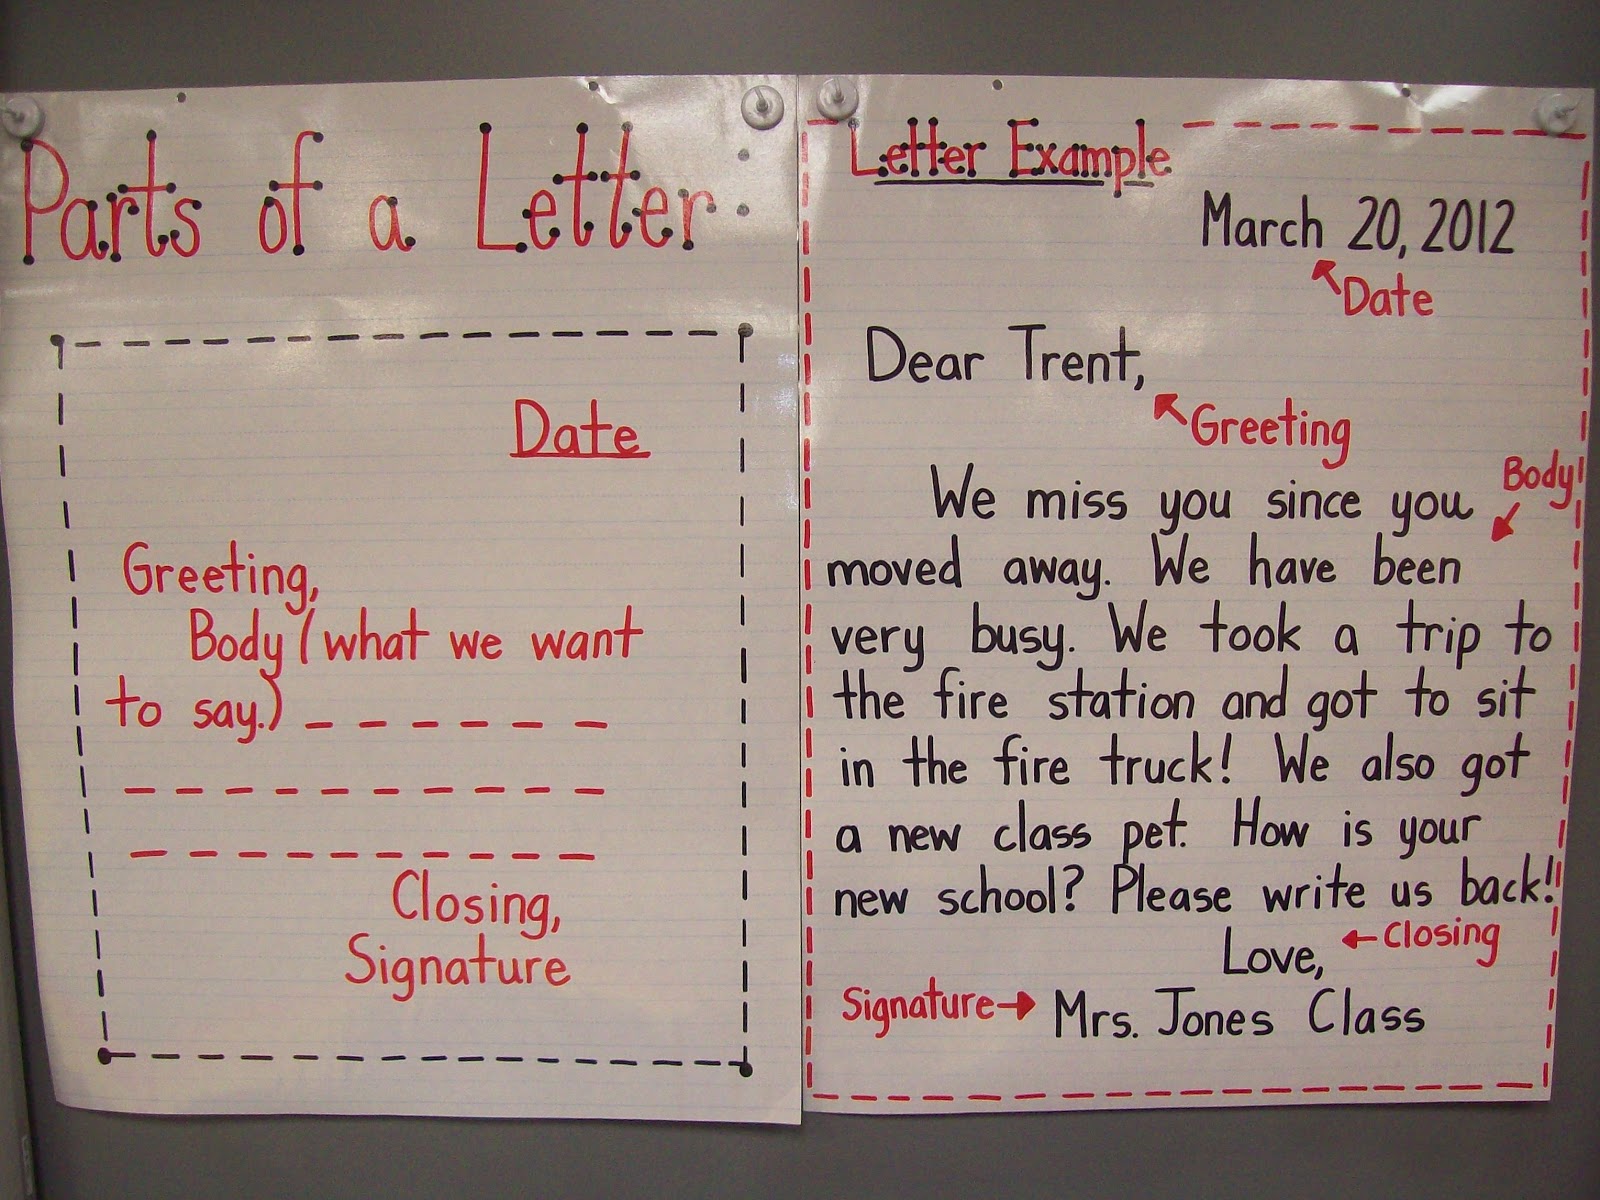 Parts of a Letter:
Date
Greeting,
Body (what we want
to say.)
Closing,
Signature
Letter Example
March 20, 2012
Date
Dear Trent,
Greeting
Body
We miss you since you
moved away. We have been
very busy. We took a trip to
the fire station and got to sit
in the fire truck! We also got
a new class pet. How is your
new school? Please write us back!
Love,
Closing
Signature
Mrs. Jones Class